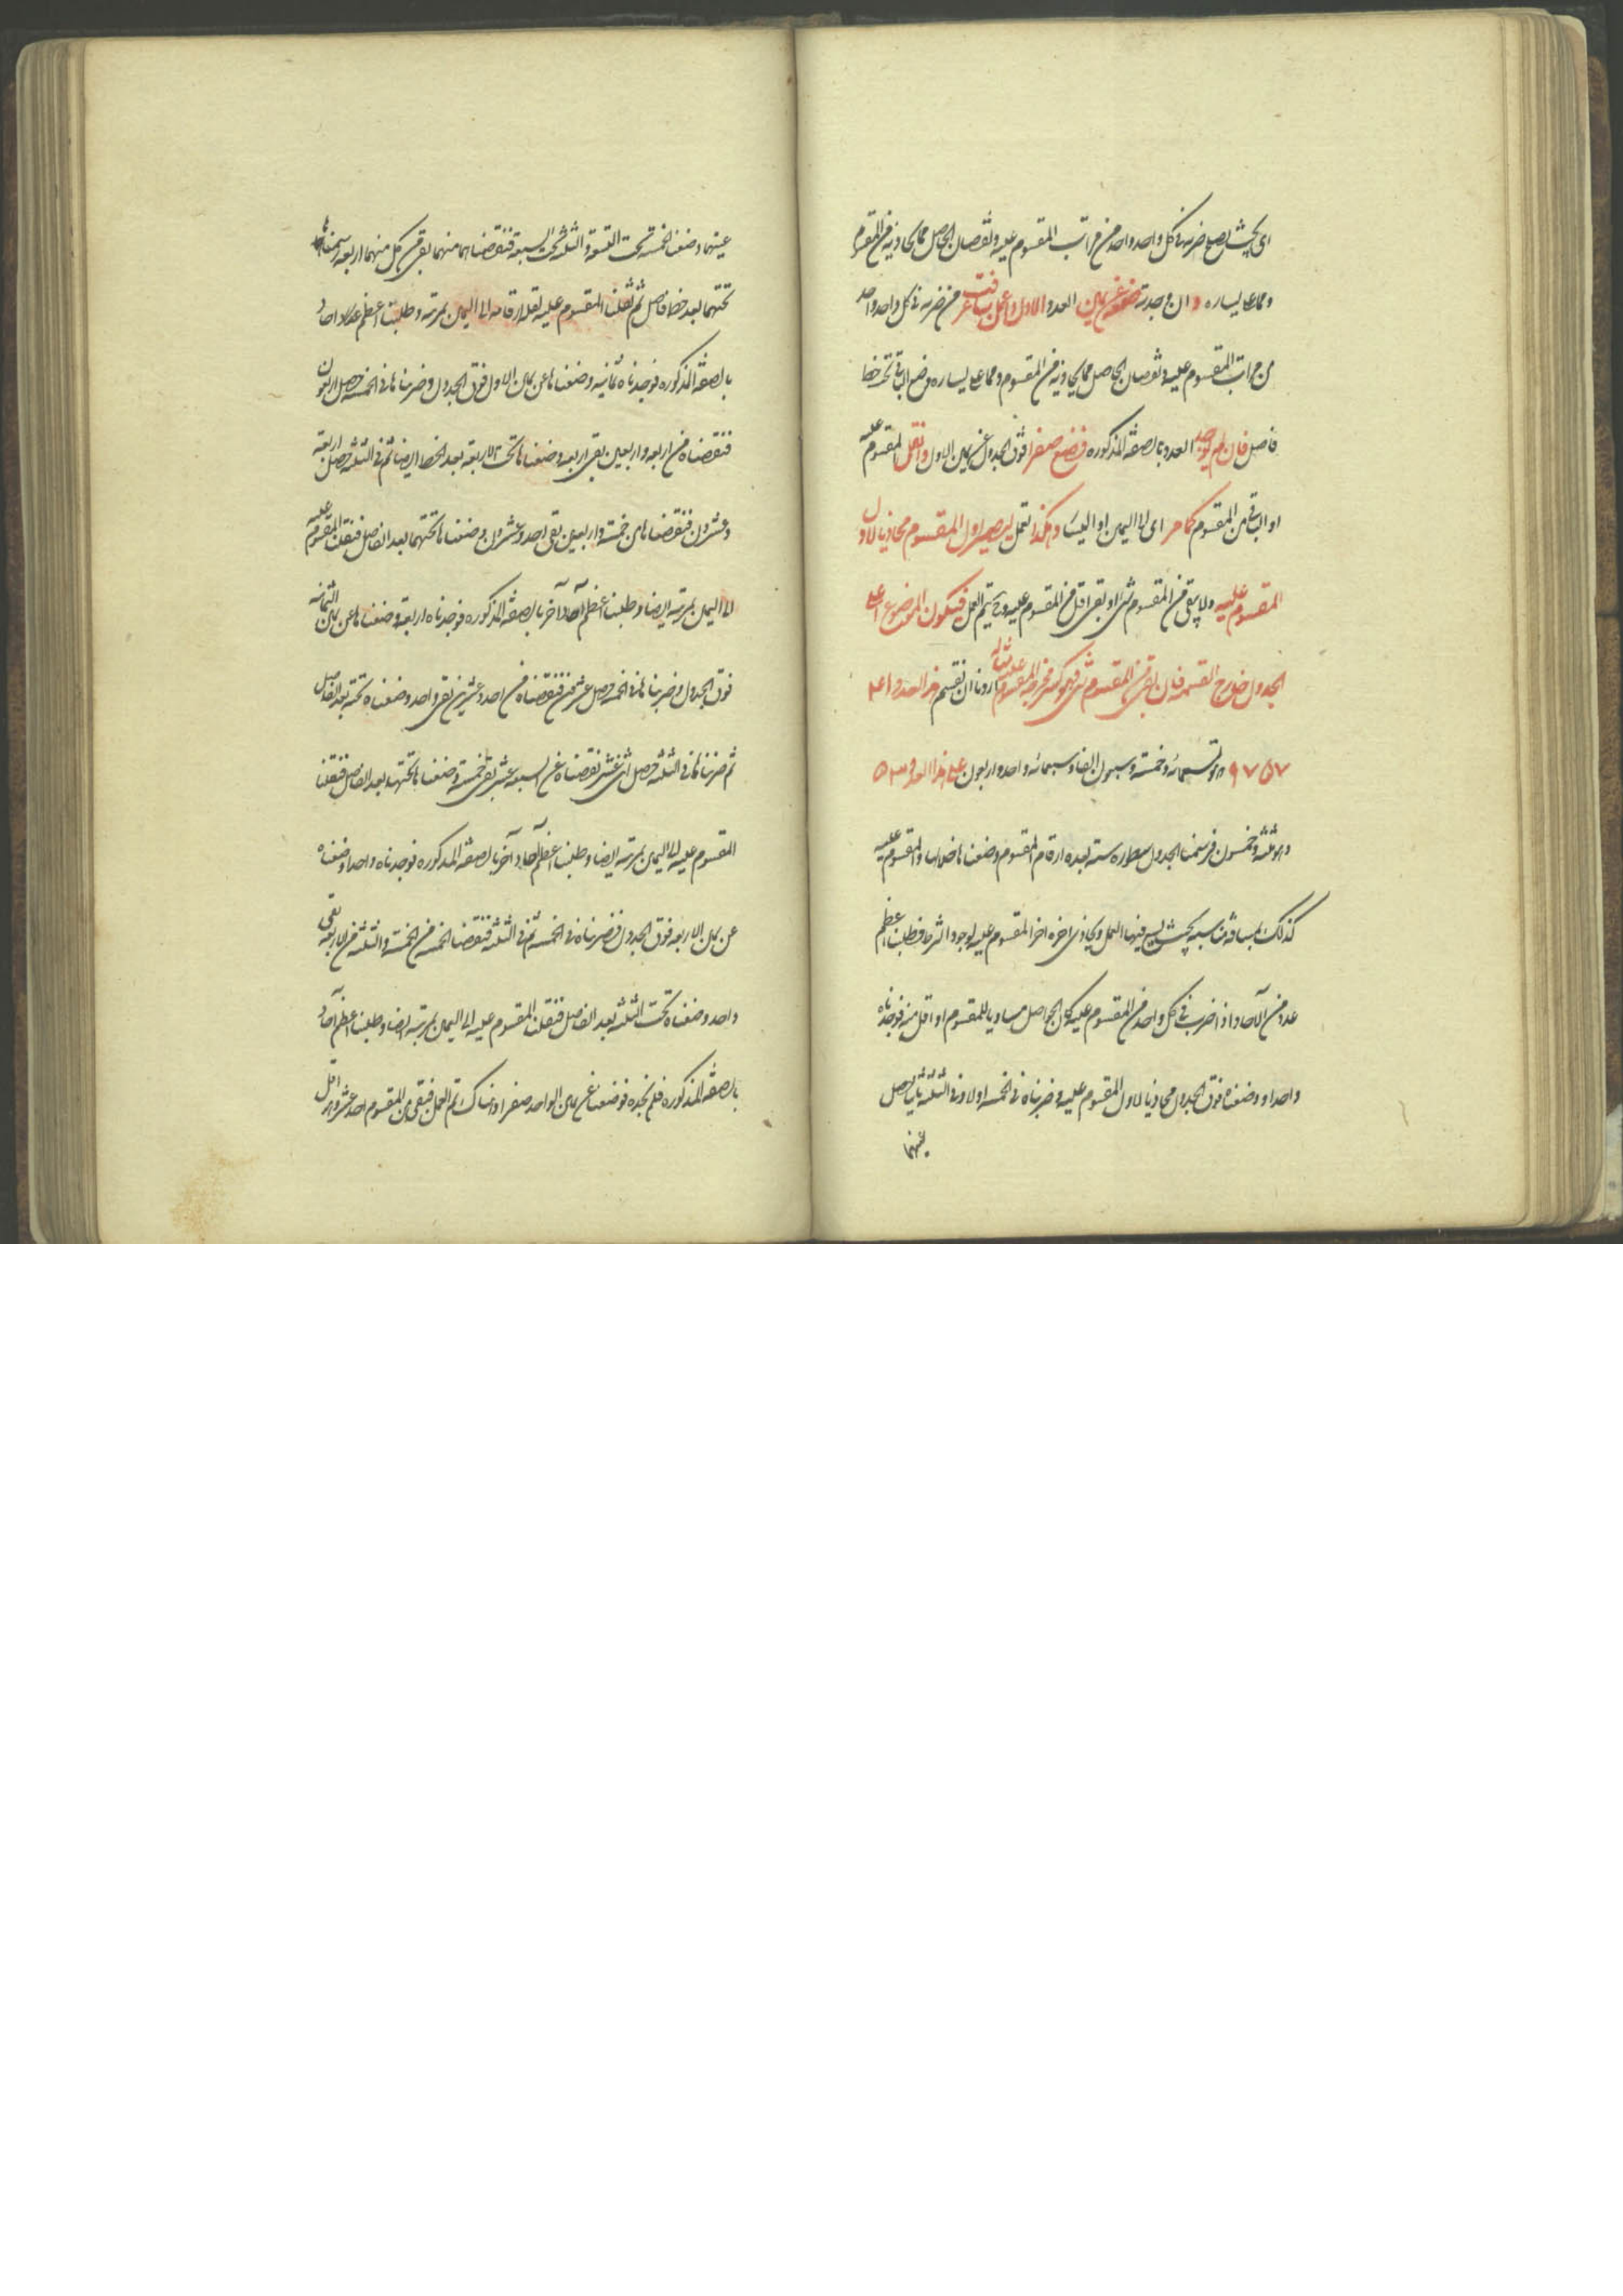 اى بحيث يصح ضربه فى كل واحد واحد من مراتب المقسوم عليه ونقصان الحاصل مما يحاذيه من المقسوم
ومما على يساره وان وجدته فضعه عن يمين العدد الاول واعمل به ما عرفت من ضربه فى كل واحد واحد
من مراتب المقسوم عليه ونقصان الحاصل مما يحاذيه من المقسوم ومما على يساره ووضع الباقى تحته خطا
فاصل فان لم يوجد العدد بالصفة المذكوره فضع صفرا فوق الجدول عن يمين الاول وانقل المقسوم عليه
او الباقى من المقسوم كما مر اى الى اليمين او اليسار وهكذا تعمل ليصير اول المقسوم محاذيا لاول
المقسوم عليه ولا يبقى من المقسوم شئ او بقى اقل من المقسوم عليه وح يتم العمل فيكون الموضوع اعلى
الجدول خارج القسمة فان بقى من المقسوم شئ فهو كسر مخرجه المقسوم عليه مثاله اردنا ان نقسم هذا العدد ٩٧٥٧٤١
وهو تسعمائة وخمسة وسبعون الفا وسبعمائه واحد واربعون على هذا العدد ٥٣
وهو ثلثة وخمسون فرسمنا الجدول سطوره ستة بعده ارقام المقسوم وضعناها خلالها والمقسوم عليه
كذلك بمسافة مناسبة بحيث يسع فيها العمل ويحاذى اخره اخر المقسوم عليه لوجود الشرط فطلبنا اعظم
عدد من الآحاد اذا ضرب فى كل واحد من المقسوم عليه كان الحاصل مساويا للمقسوم او اقل منه فوجدناه
واحدا ووضعناه فوق الجدول محاذيا لاول المقسوم عليه وضربناه فى الخمسة اولا وفى الثلثة ثانيا حصل
عينهما
عينهما وضعنا الخمسة تحت التسعة والثلثة تحت السبعة فنقصناهما منهما بقى من كل منهما اربعة رسمناها
تحتهما بعد خط فاصل ثم نقلنا المقسوم عليه نقلة ارقامه الى اليمين بمرتبه وطلبنا اعظم عدد احاد
بالصفة المذكوره فوجدناه ثمانية وضعناها عن يمين الاول فوق الجدول وضربناها فى الخمسة حصل اربعون
فنقصناه من اربعة واربعين بقى اربعة وضعناها تحت الاربعة بعد الخط ايضا ثم فى الثلثة حصل اربعة
وعشرون فنقصناها من خمسة واربعين بقى احد وعشرون وضعناها تحتهما بعد الفاصل فنقلنا المقسوم عليه
الى اليمين بمرتبة ايضا وطلبنا اعظم آحاد آخر بالصفة المذكوره فوجدناه اربعة وضعناها عن يمين الثمانية
فوق الجدول وضربناها فى الخمسة حصل عشرون فنقصناه من احد وعشرين بقى واحد وضعناه تحته بعد الفاصل
ثم ضربناها فى الثلثة حصل اثنى عشر نقصناه عن السبعة عشر بقى خمسة وضعناها تحتها بعد الفاصل فنقلنا
المقسوم عليه الى اليمين بمرتبة ايضا وطلبنا اعظم آحاد آخر بالصفة المذكوره فوجدناه واحدا وضعناه
عن يمين الاربعة فوق الجدول فضربناه فى الخمسة ثم فى الثلثة فنقصنا الخمسة من الخمسة والثلثة من الاربعة بقى
واحد وضعناه تحت الثلثة بعد الفاصل فنقلنا المقسوم عليه الى اليمين بمرتبة ايضا وطلبنا اعظم آحاد
بالصفة المذكوره فلم نجده فوضعنا عن يمين الواحد صفرا وهناك تم العمل فبقى من المقسوم احد عشر وهو اقل